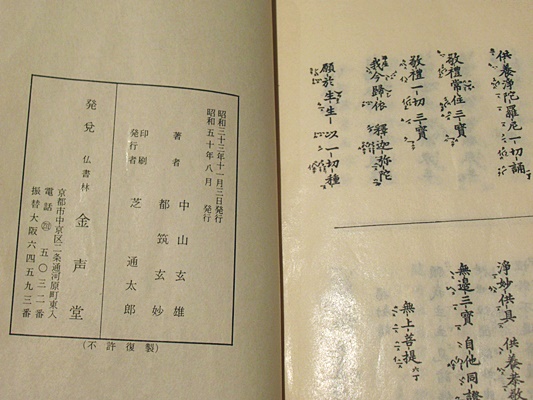 供養浄陀羅尼一切誦
敬禮常住三寶
敬禮一切三寶
我今歸依 釋迦弥陀
願於生生 以一切種
浄妙供具 供養恭敬
無邊三寶 自他同證
無上菩提
昭和三十三年十一月三日発行
昭和五十年八月 発行
著者 中山玄雄
都筑玄妙
印刷
発行者 芝通太郎
発兌 仏書林 金声堂
京都市中京区二条通河原町東入
電話 五〇三二番
振替大阪六四五九三番
(不許復製)